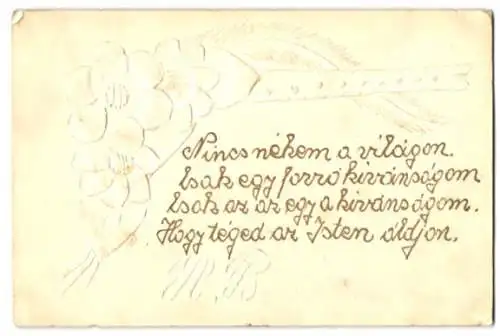 Nincs nékem a világon.
Csak egy forró kivánságom
Csak az az egy a kivánságom.
Hogy téged az Isten áldjon.
M. B